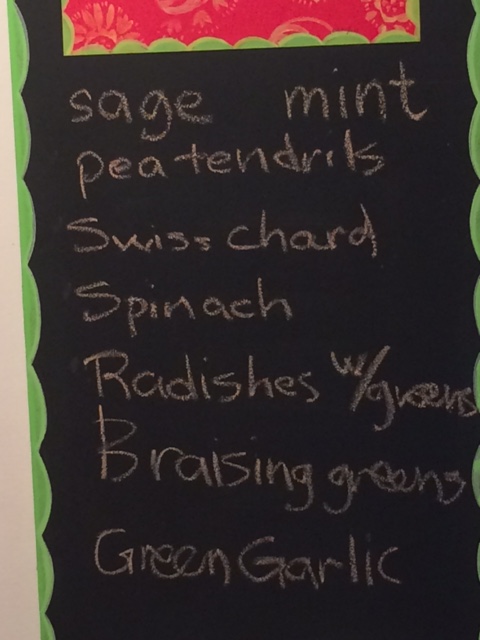 sage mint
pea tendrils
Swiss chard
Spinach
Radishes w/greens
Braising greens
Green Garlic